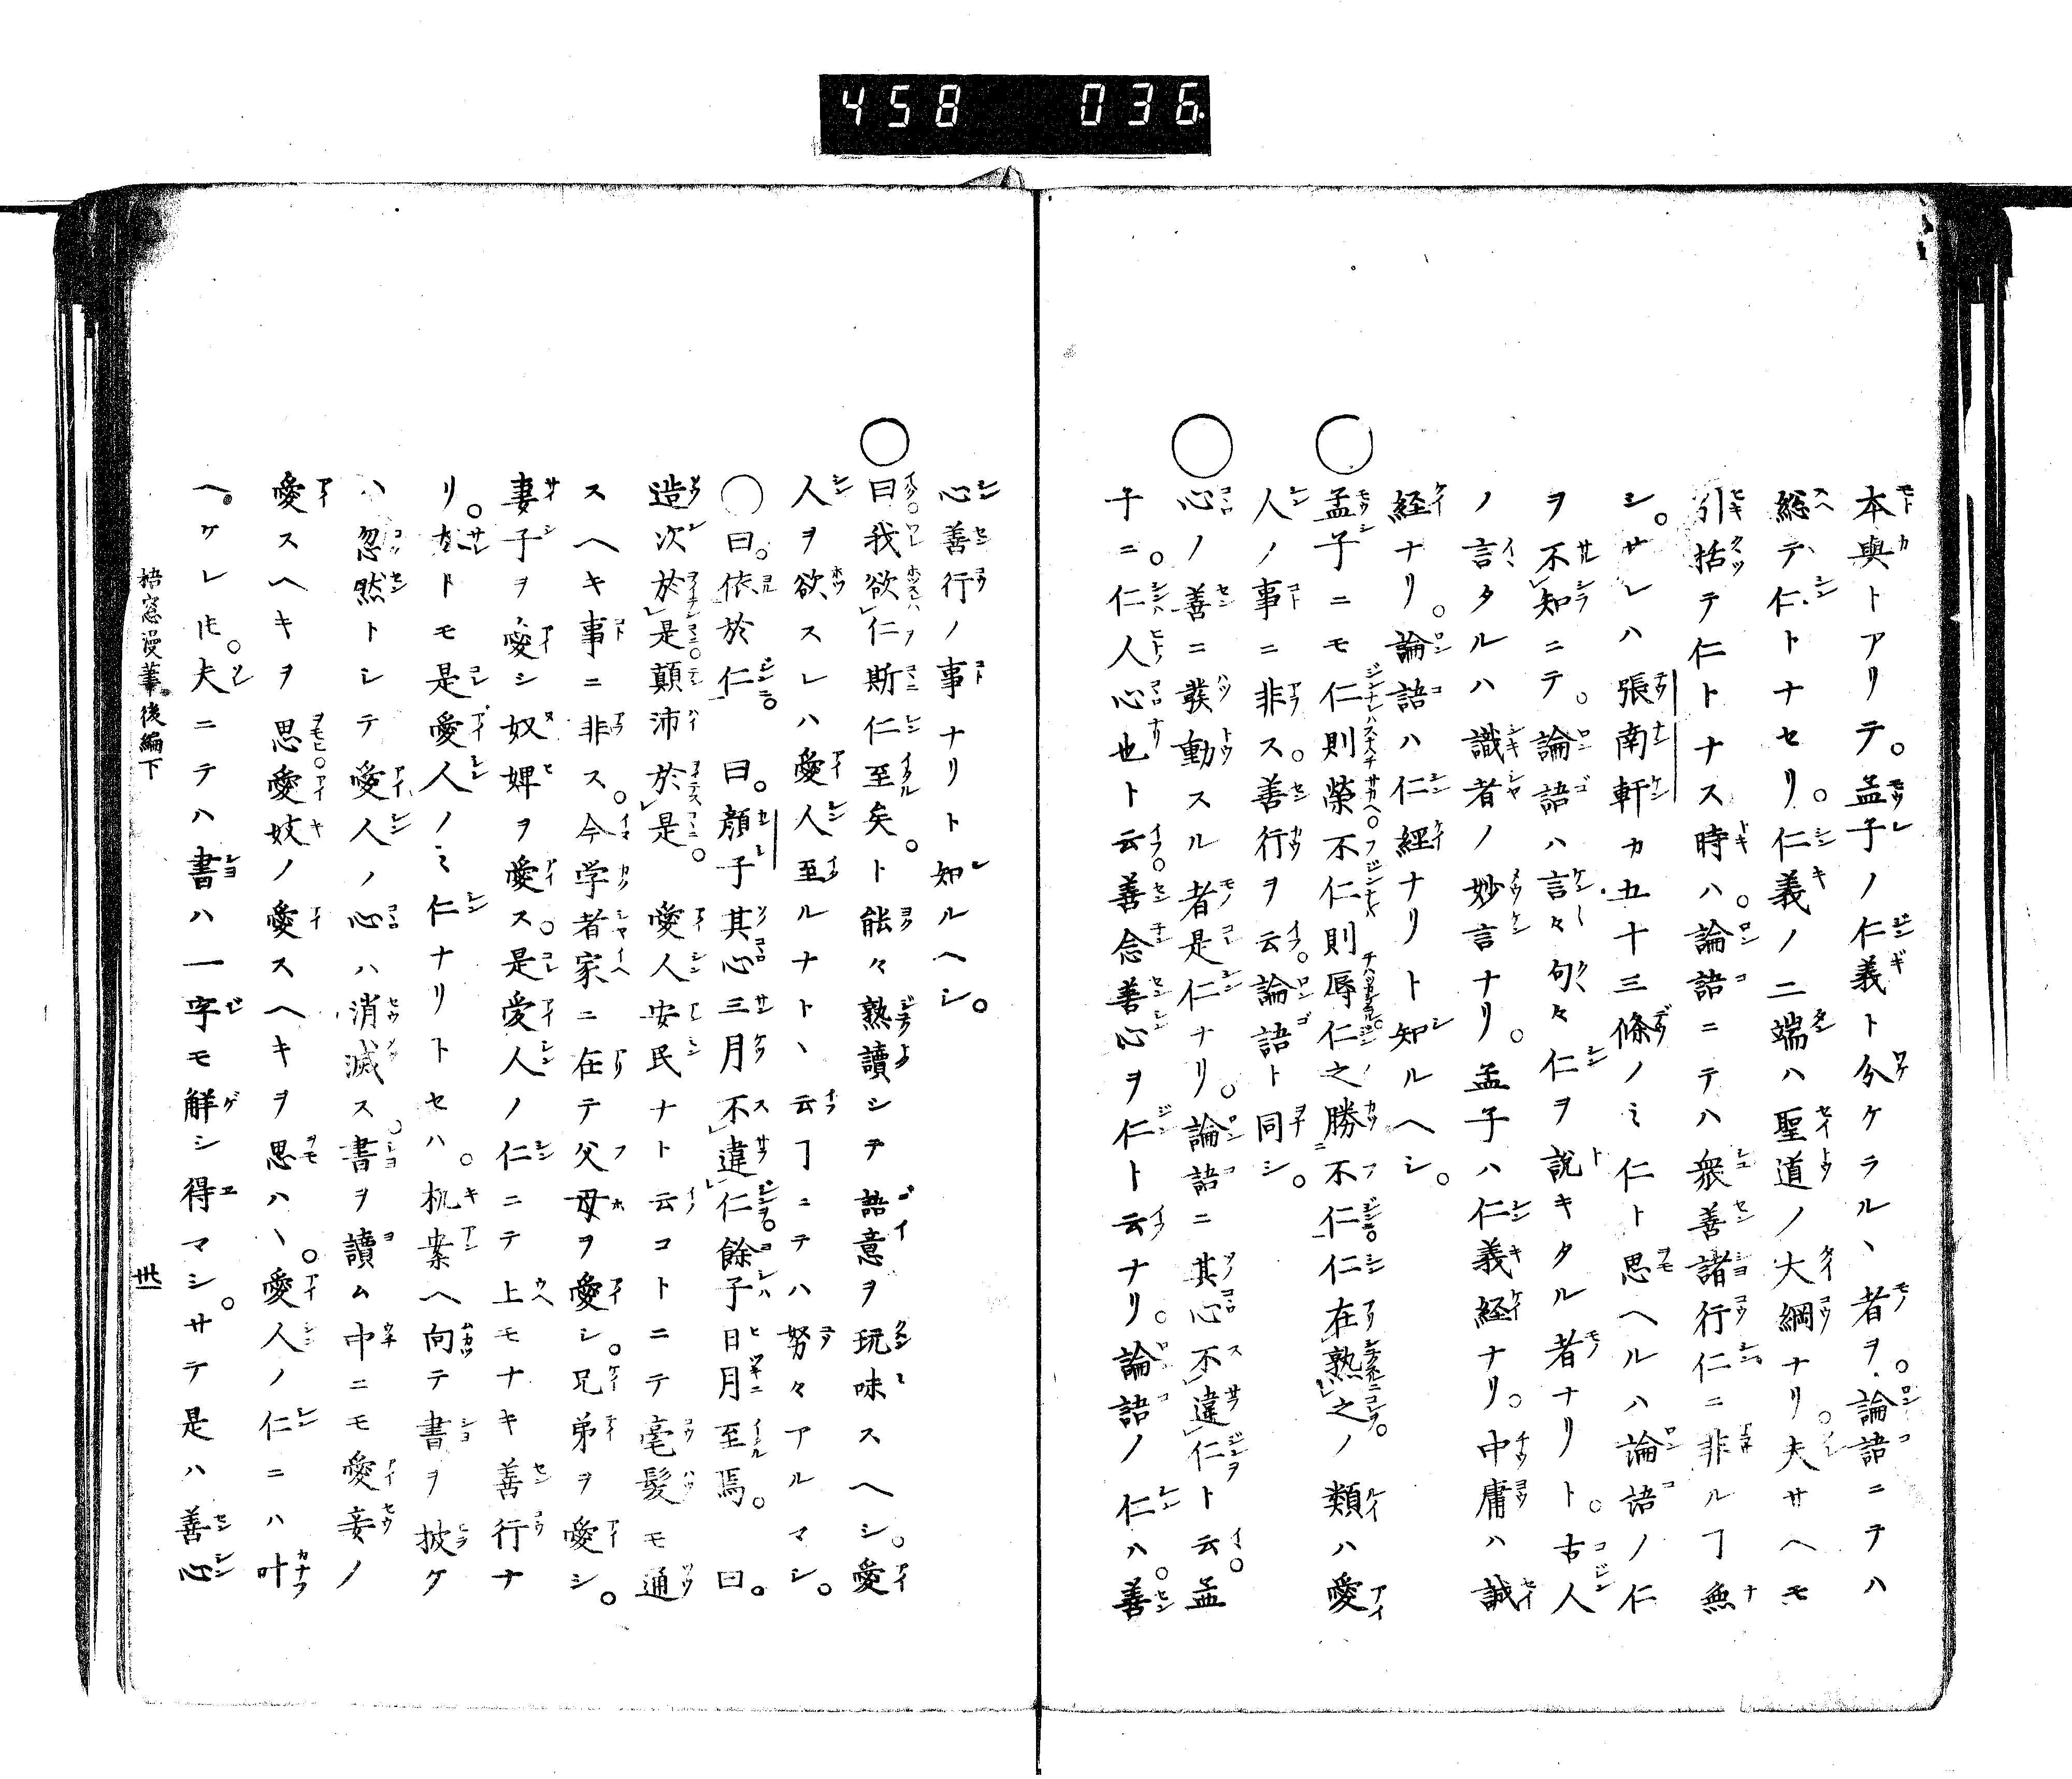 458 036
本與トアリテ。孟子ノ仁義ト分ケラルヽ者ヲ。論語ニテハ
総テ仁トナセリ。仁義ノ二端ハ聖道ノ大綱ナリ。夫サヘモ
引括テ仁トナス時ハ。論語ニテハ衆善諸行仁ニ非ルヿ無
シ。サレハ張南軒カ五十三條ノミ仁ト思ヘルハ論語ノ仁
ヲ不知ニテ。論語ハ言々句々仁ヲ説キタル者ナリト。古人
ノ言タルハ識者ノ妙言ナリ。孟子ハ仁義経ナリ。中庸ハ誠
経ナリ。論語ハ仁経ナリト知ルヘシ。
〇孟子ニモ仁則榮不仁則辱仁之勝不仁仁在熟之ノ類ハ愛
人ノ事ニ非ス。善行ヲ云。論語ト同シ。
〇心ノ善ニ發動スル者是仁ナリ。論語ニ其心不違仁ト云。孟
子ニ。仁人心也ト云。善念善心ヲ仁ト云ナリ。論語ノ仁ハ。善
心善行ノ事ナリト知ルヘシ。
〇曰我欲仁斯仁至矣。ト能々熟讀シテ語意ヲ玩味スヘシ。愛
人ヲ欲スレハ愛人至ルナトヽ云ヿニテハ努々アルマシ。
〇曰。依於仁。曰。顔子其心三月不違仁。餘子日月至焉。曰。
造次於是。顛沛於是。愛人安民ナト云コトニテ毫髪モ通
スヘキ事ニ非ス。今学者家ニ在テ父母ヲ愛シ。兄弟ヲ愛シ。
妻子ヲ愛シ奴婢ヲ愛ス。是愛人ノ仁ニテ上モナキ善行ナ
リ。左トモ是愛人ノミ仁ナリトセハ。机案ヘ向テ書ヲ披ケ
ハ忽然トシテ愛人ノ心ハ消滅ス。書ヲ讀ム中ニモ愛妾ノ
愛スヘキヲ思愛妓ノ愛スヘキヲ思ハヽ。愛人ノ仁ニハ叶
ヘケレ𪜈。夫ニテハ書ハ一字モ解シ得マシ。サテ是ハ善心
梧窓漫筆後編下 卅